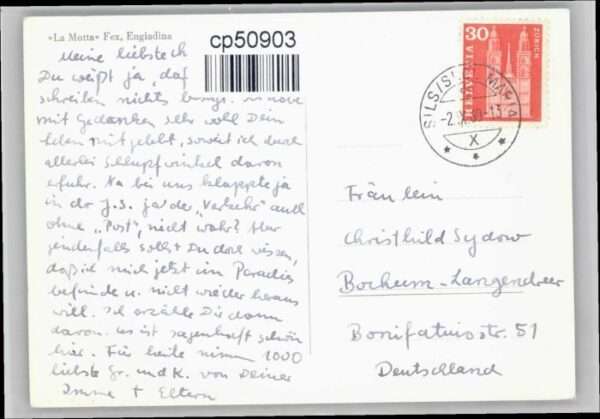 «La Motta» Fex, Engiadina
cp50903
30
HELVETIA
ZÜRICH
SILS/SEGL MARIA
X
Meine liebste Ch
Du weißt ja, daß
schreiben nichts
mit Gedanken sehr wohl Dein
Leben mitgelebt, soweit ich durch
allerlei Schlupfwinkel davon
erfuhr. Na bei uns klappte ja
in der J.S. ja der „Verkehr" auch
ohne „Post", nicht wahr? Aber
jedenfalls sollst Du doch wissen,
daß ich mich jetzt im Paradies
befinde u. nicht wieder heraus
will. Ich erzähle Dir dann
davon. Es ist sagenhaft schön
hier. Für heute nimm 1000
liebste Gr. und K. von Deiner
Imme + Eltern
Fräulein
Christhild Sydow
Bochum-Langendreer
Bonifatiusstr. 51
Deutschland